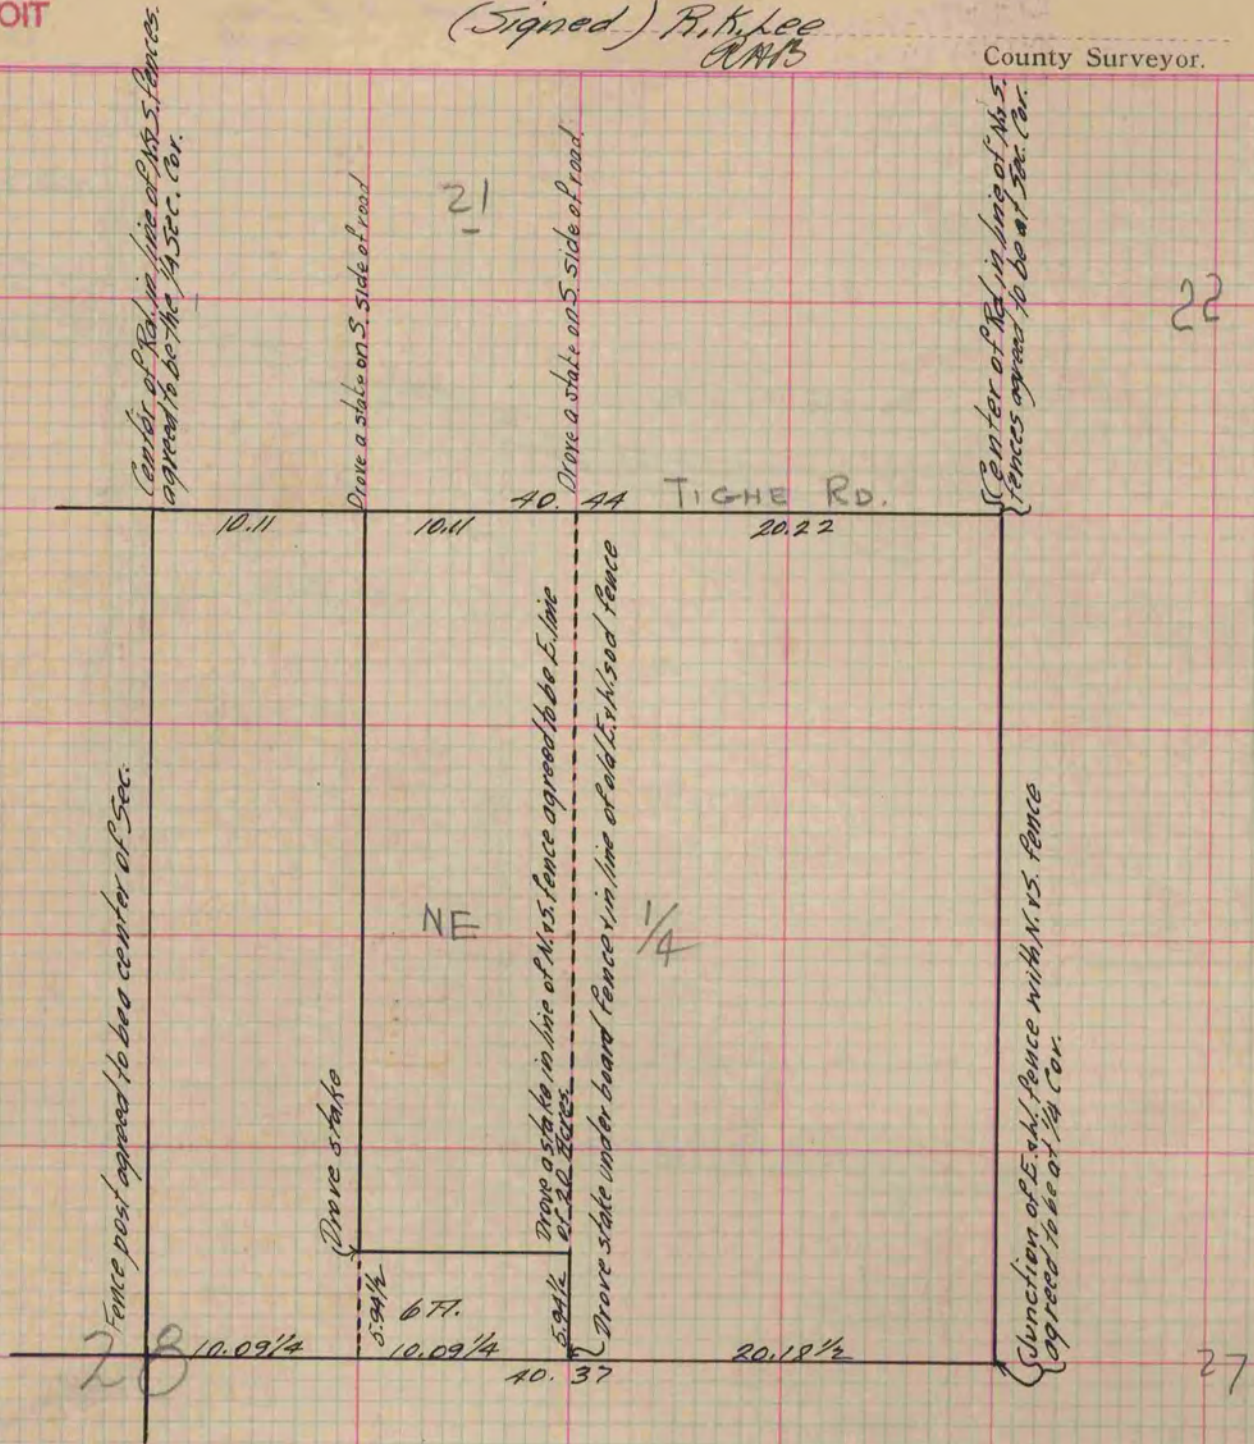 OIT
(Signed) R.K. Lee
RAB
County Surveyor.
Center of Rd. in line of N.&S. fences.
agreed to be the 1/4 Sec. Cor.
Drove a stake on S. side of road
21
Drove a stake on S. side of road
Center of Rd. in line of N&S.
fences agreed to be at Sec. Cor.
22
40.44
TIGHE RD.
10.11
10.11
20.22
Fence post agreed to be a center of Sec.
Drove stake
NE
1/4
Drove a stake in line of N.&S. fence agreed to be E. line
of 20 Acres
Drove stake under board fence & in line of old E.&W. sod fence
Junction of E.&W. fence with N.&S. fence
agreed to be at 1/4 Cor.
5.94 1/2
6 A.
5.94 1/2
28
10.09 1/4
10.09 1/4
20.18 1/2
40.37
27